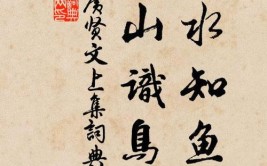 水知鱼
山識鳥
广贤文上集詞典